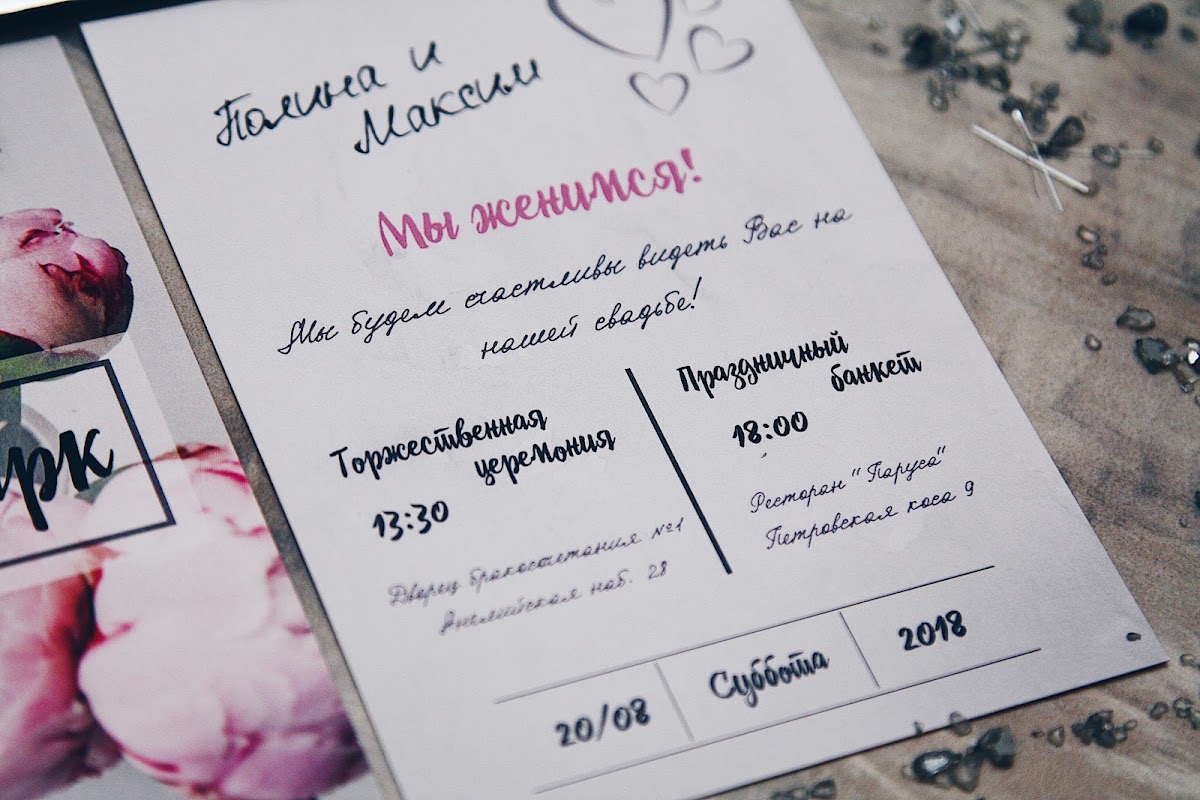 Полина и
Максим
Мы женимся!
Мы будем счастливы видеть Вас на
нашей свадьбе!
Торжественная
церемония
13:30
Дворец бракосочетания №1
Английская наб. 28
Праздничный
банкет
18:00
Ресторан "Паруса"
Петровская коса 9
20/08
Суббота
2018